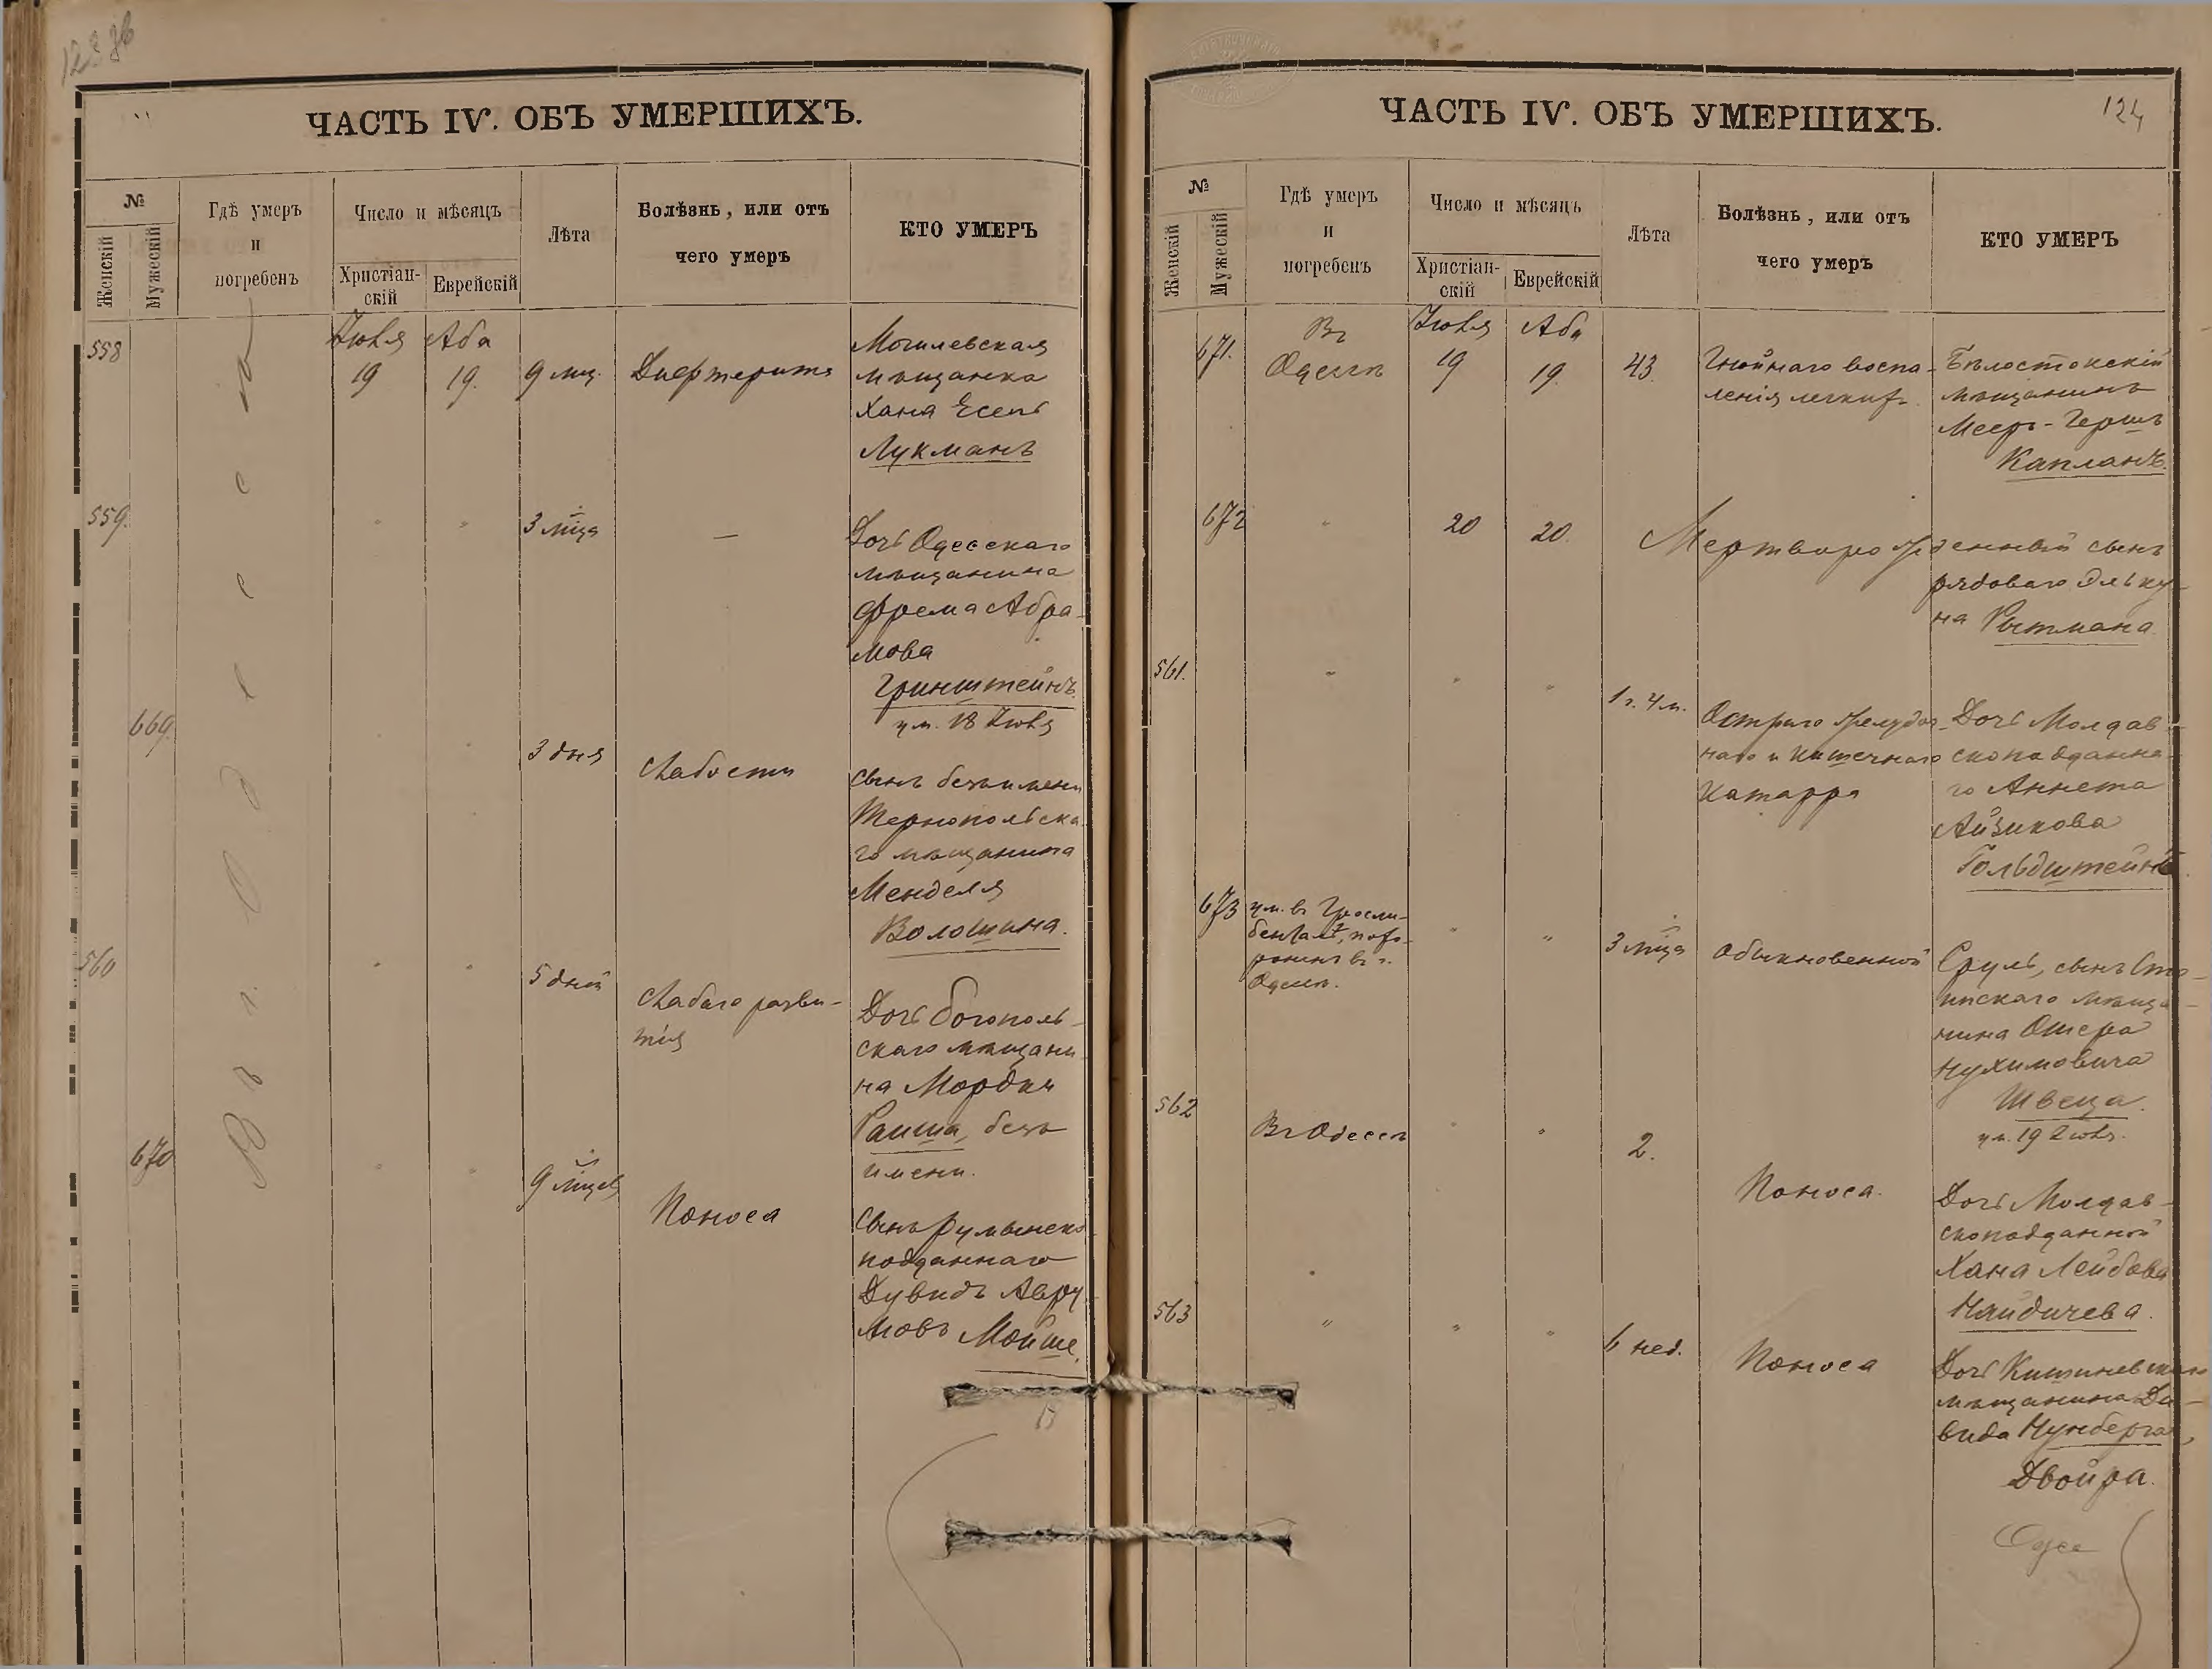 ЧАСТЬ IV. ОБЪ УМЕРШИХЪ.
№
Женскій
Мужескій
Гдѣ умеръ
и
погребенъ
Число и мѣсяцъ
Христіан-
скій
Еврейскій
Лѣта
Болѣзнь, или отъ
чего умеръ
КТО УМЕРЪ
Въ г. Одессѣ
558
Іюля
19
Аба
19.
9 мц.
Дифтерита
Могилевская
мѣщанка
Хана Есепъ
Лукманъ
559.
"
"
3 мца
—
Дочь Одесскаго
мѣщанина
Фрема Абра-
мова
Гринштейнъ.
ум. 18 Іюля
669.
"
"
3 дня
Слабости
Сынъ безъ имени
Тернопольска-
го мѣщанина
Менделя
Волошина.
560
"
"
5 дней
Слабаго разви-
тія
Дочь Богополь-
скаго мѣщани-
на Мордки
Раиша, безъ
имени.
670
"
"
9 мцев
Поноса
Сынъ румынско
подданнаго
Дувидъ Авру-
мовъ Мойше.
124
ЧАСТЬ IV. ОБЪ УМЕРШИХЪ.
№
Женскій
Мужескій
Гдѣ умеръ
и
погребенъ
Число и мѣсяцъ
Христіан-
скій
Еврейскій
Лѣта
Болѣзнь, или отъ
чего умеръ
КТО УМЕРЪ
671.
Въ
Одессѣ
Іюля
19
Аба
19.
43.
Гнойнаго воспа-
ленія легких
Бѣлостокскій
мѣщанинъ
Мееръ-Гершъ
Капланъ.
672
"
20
20.
Мертворожденный сынъ
рядоваго Эльку-
на Ройтмана
561.
"
"
"
1 г. 4 м.
Остраго желудоч-
наго и кишечнаго
катарра
Дочь Молдав-
скоподданна-
го Аннета
Айзикова
Гольдштейнъ.
673
ум. в Гросли-
бенталѣ, похо-
роненъ в г.
Одессѣ.
"
"
3 мца
Обыкновенной
Сруль, сынъ
мѣща-
нина Ошера
Нухимовича
Швеца.
ум. 19 Іюля.
562
Въ Одессѣ
"
"
2.
Поноса.
Дочь Молдав-
скоподданной
Хана Лейбова
Найдичева.
563
"
"
"
6 нед.
Поноса
Дочь Кишиневскаго
мѣщанина Да-
вида Нунберга,
Двойра.